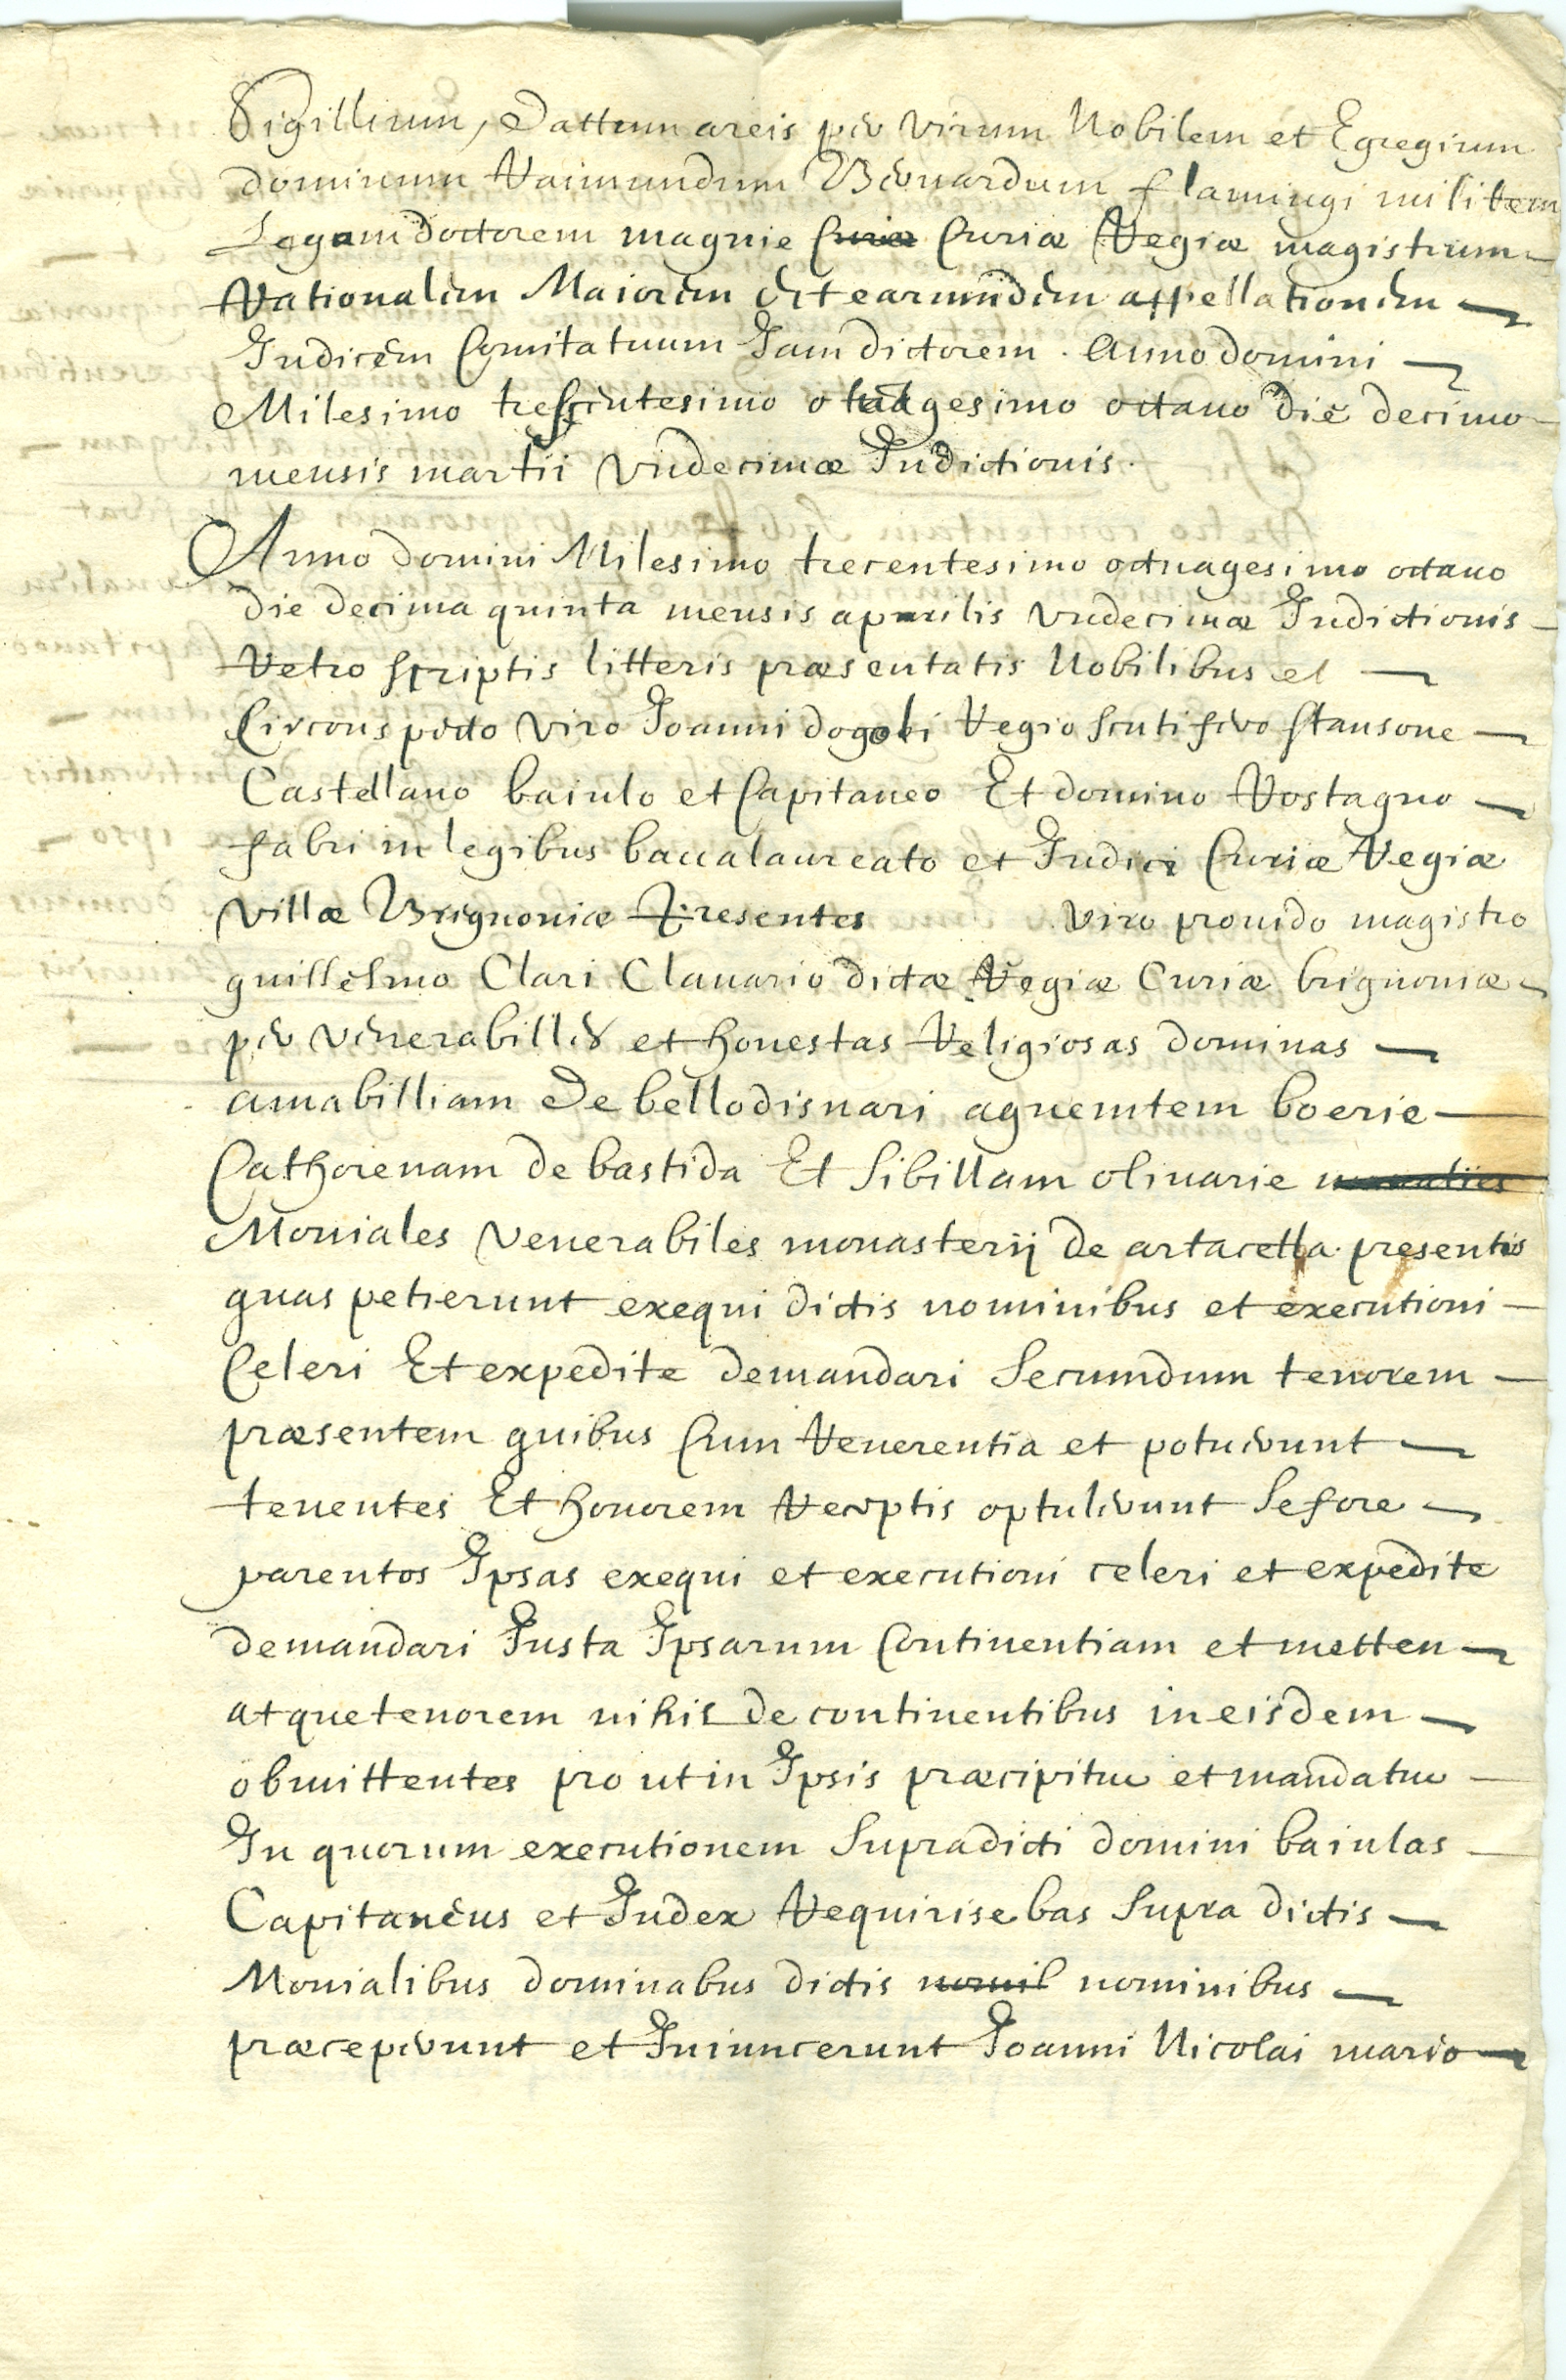 Sigillirum, Dattum areis per virum Nobilem et Egregium
dominum Raimundum Bernardum flamingi militem
Legum doctorem magnie Curiæ Curiæ Regiæ magistrum
Rationalem Maiorem Et earumdem appellationem
Judicem Comitatuum Jam dictorem. Anno domini
Milesimo trescentesimo octuagesimo octauo die decimo
mensis martii vndecimæ Indictionis.
Anno domini Milesimo trecentesimo octuagesimo octauo
die decima quinta mensis aprilis vndecimæ Indictionis
Retro scriptis litteris præsentatis Nobilibus et
Circonspecto viro Joanni dogoli Regio scutifero stansone
Castellano baiulo et Capitaneo Et domino Rostagno
fabri in legibus baccalaureato et Judici Curiæ Regiæ
villæ Brignoniæ Presentes viro prouido magistro
guillelmo Clari Clauario dictæ Regiæ Curiæ brignoniæ
per venerabilles et honestas Religiosas dominas
amabilliam De bellodisnari agnemtem boerie
Cathorenam de bastida Et Sibillam oliuarie
Moniales venerabiles monasterij de artacella presentis
quas petierunt exequi dictis nominibus et executioni
Celeri Et expedite demandari Secumdum tenorem
præsentem quibus Cum Reuerentia et potuerunt
tenentes Et honorem Receptis optulerunt Se fore
parentos Ipsas exequi et executioni celeri et expedite
demandari Justa Ipsarum Continentiam et metten
atque tenorem nihil de continentibus in eisdem
obmittentes pro ut in Ipsis præcipitur et mandatur
In quorum executionem Supradicti domini baiulas
Capitaneus et Judex Requirisebas Supra dictis
Monialibus dominabus dictis nomil nominibus
præceperunt et Iniuncerunt Joanni Nicolai mario